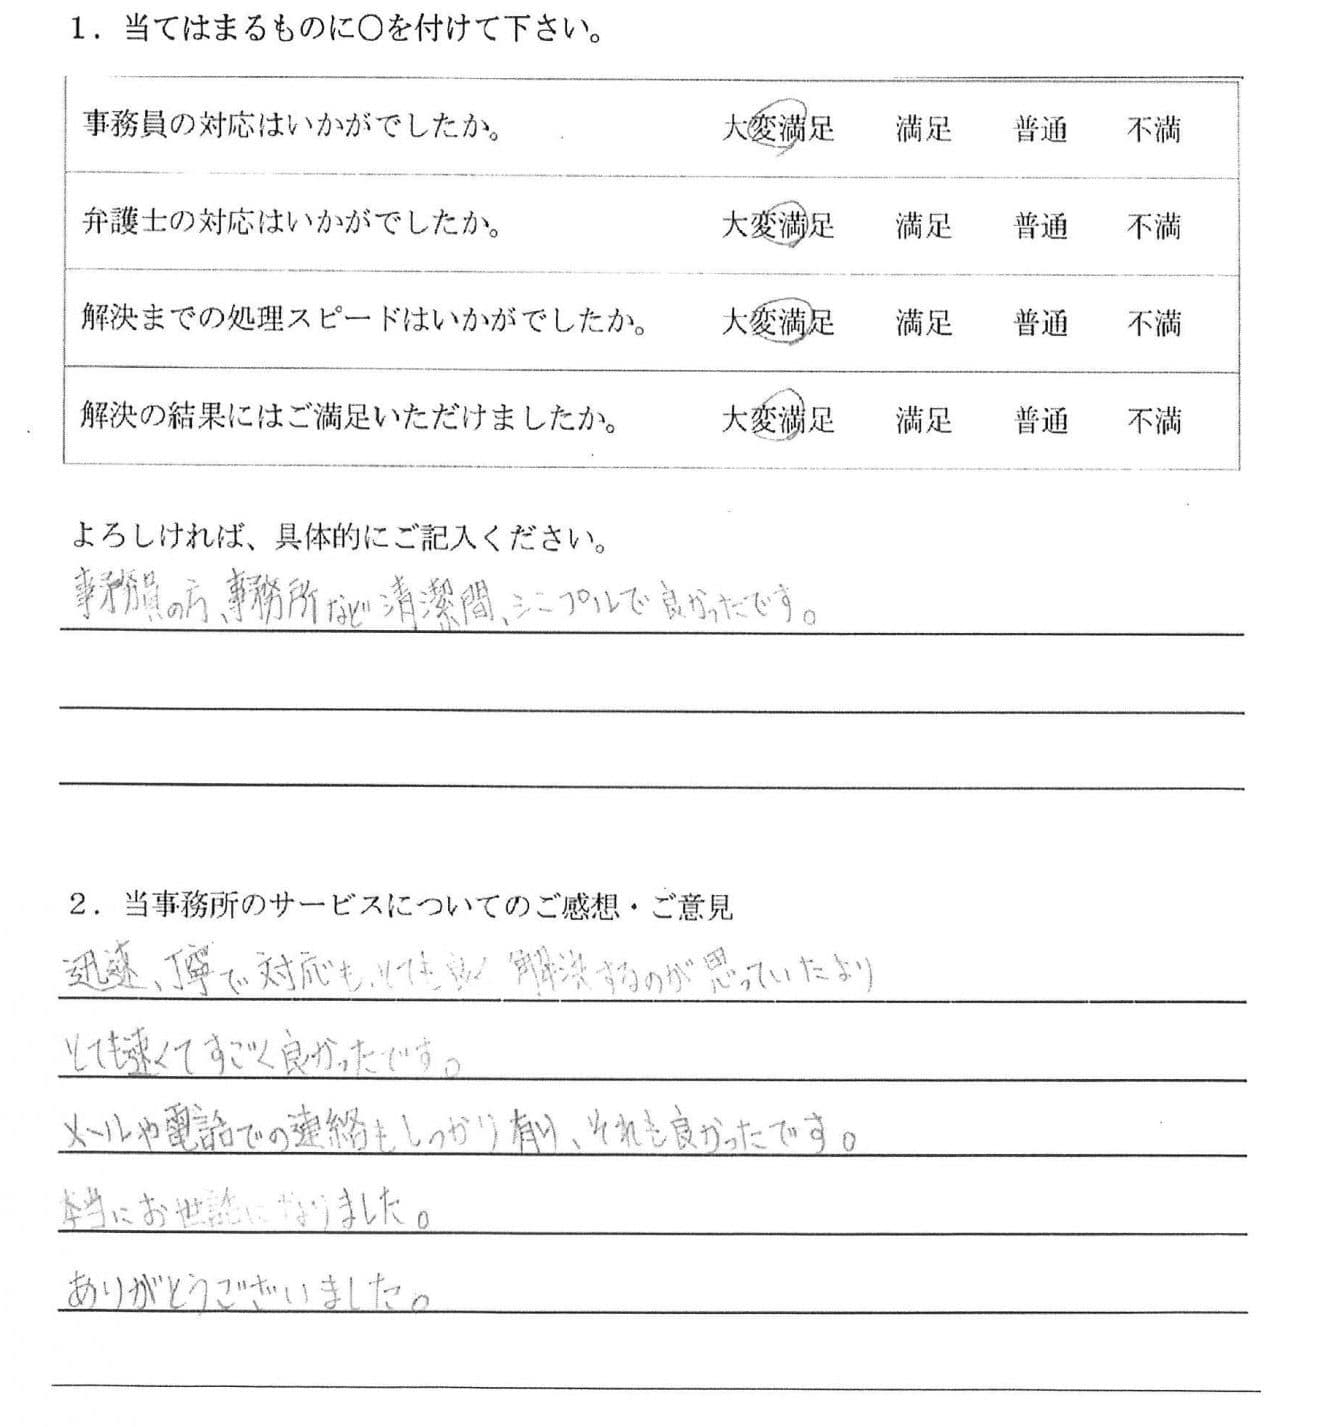 1. 当てはまるものに〇を付けて下さい。
事務員の対応はいかがでしたか。 大変満足 満足 普通 不満
弁護士の対応はいかがでしたか。 大変満足 満足 普通 不満
解決までの処理スピードはいかがでしたか。 大変満足 満足 普通 不満
解決の結果にはご満足いただけましたか。 大変満足 満足 普通 不満
よろしければ、具体的にご記入ください。
事務員の方、事務所など清潔間、シンプルで良かったです。
2. 当事務所のサービスについてのご感想・ご意見
迅速、丁寧で対応も、とても良く 解決するのが思っていたより
とても速くてすごく良かったです。
メールや電話での連絡もしっかり有り、それも良かったです。
本当にお世話になりました。
ありがとうございました。